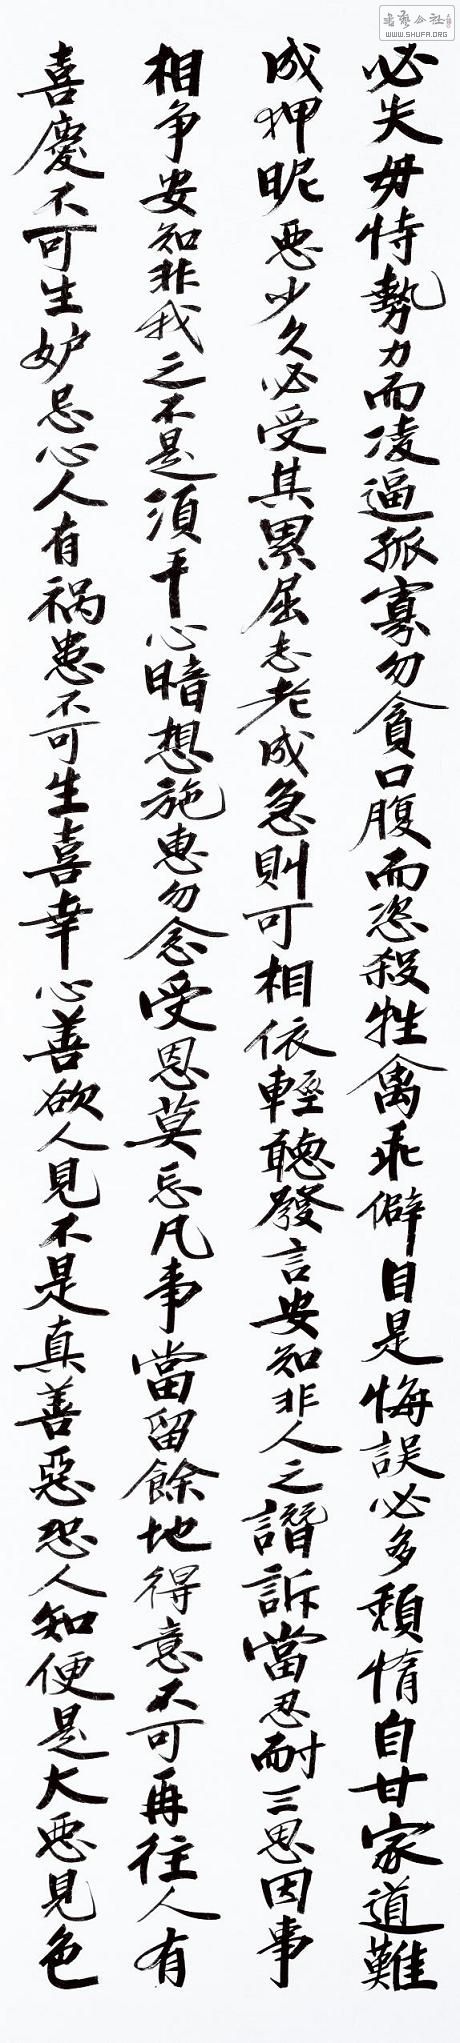 书艺公社
WWW.SHUFA.ORG
必失毋恃勢力而凌逼孤寡勿貪口腹而恣殺牲禽乖僻自是悔誤必多頹惰自甘家道難
成狎昵悪少久必受其累屈志老成急則可相依輕聽發言安知非人之譖訴當忍耐三思因事
相争安知非我之不是須平心暗想施惠勿念受恩莫忘凡事當留餘地得意不可再往人有
喜慶不可生妒忌心人有祸患不可生喜幸心善欲人見不是真善惡恐人知便是大悪見色